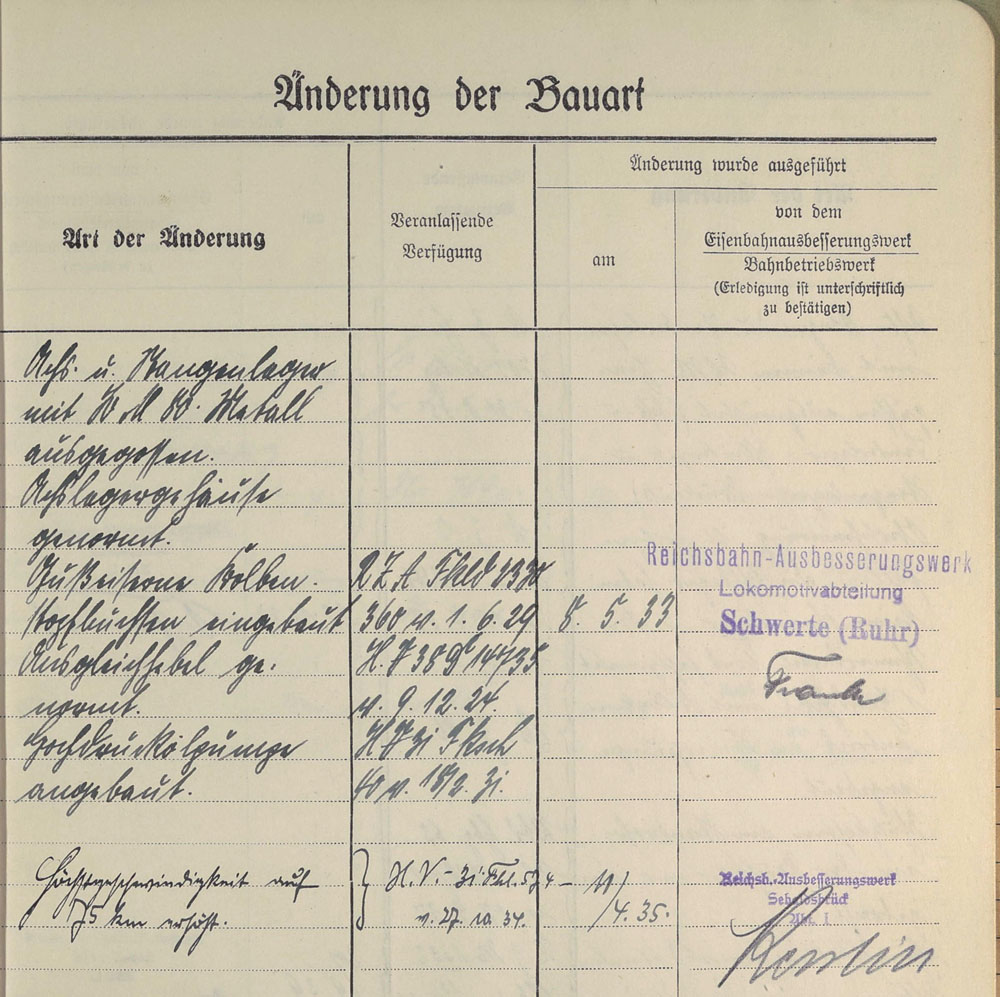 Änderung der Bauart
Art der Änderung
Veranlassende
Verfügung
Änderung wurde ausgeführt
am
von dem
Eisenbahnausbesserungswerk
Bahnbetriebswerk
(Erledigung ist unterschriftlich
zu bestätigen)
Achs- u. Stangenlager
mit W M 80. Metall
ausgegossen.
Achslagergehäuse
genormt.
Gußeiserne Kolben-
R Z A Fkld
stopfbuchsen eingebaut
360 v. 1. 6. 29
8. 5. 33
Reichsbahn-Ausbesserungswerk
Lokomotivabteilung
Schwerte (Ruhr)
Ausgleichhebel ge-
normt.
v. 9. 12. 24.
Hochdruckölpumpe
angebaut.
40 v.
Höchstgeschwindigkeit auf
75 km erhöht.
H.V.-
v. 27. 10 34.
11/
/4. 35.
Reichsb.-Ausbesserungswerk
Abt. I